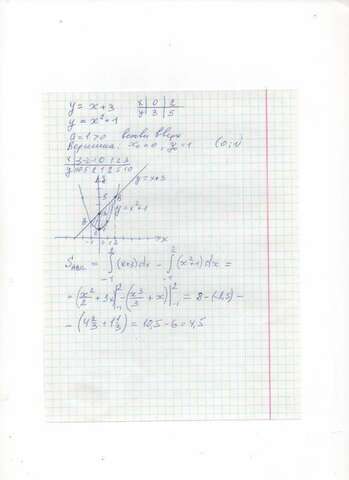 y = x+3 x 0 2
y 3 5
y = x²+1
a = 1 > 0 ветви вверх
Вершина: x₀ = 0, y₀ = 1 (0; 1)
x -3 -2 -1 0 1 2 3
y 10 5 2 1 2 5 10
y
5 B y = x+3
y = x²+1
-1 1 2 x
S = ∫₋₁² (x+3)dx − ∫₋₁² (x²+1)dx =
= (x²/2 + 3x)|₋₁² − (x³/3 + x)|₋₁² = 8 − (−2,5) −
− (4 2/3 + 1 1/3) = 10,5 − 6 = 4,5